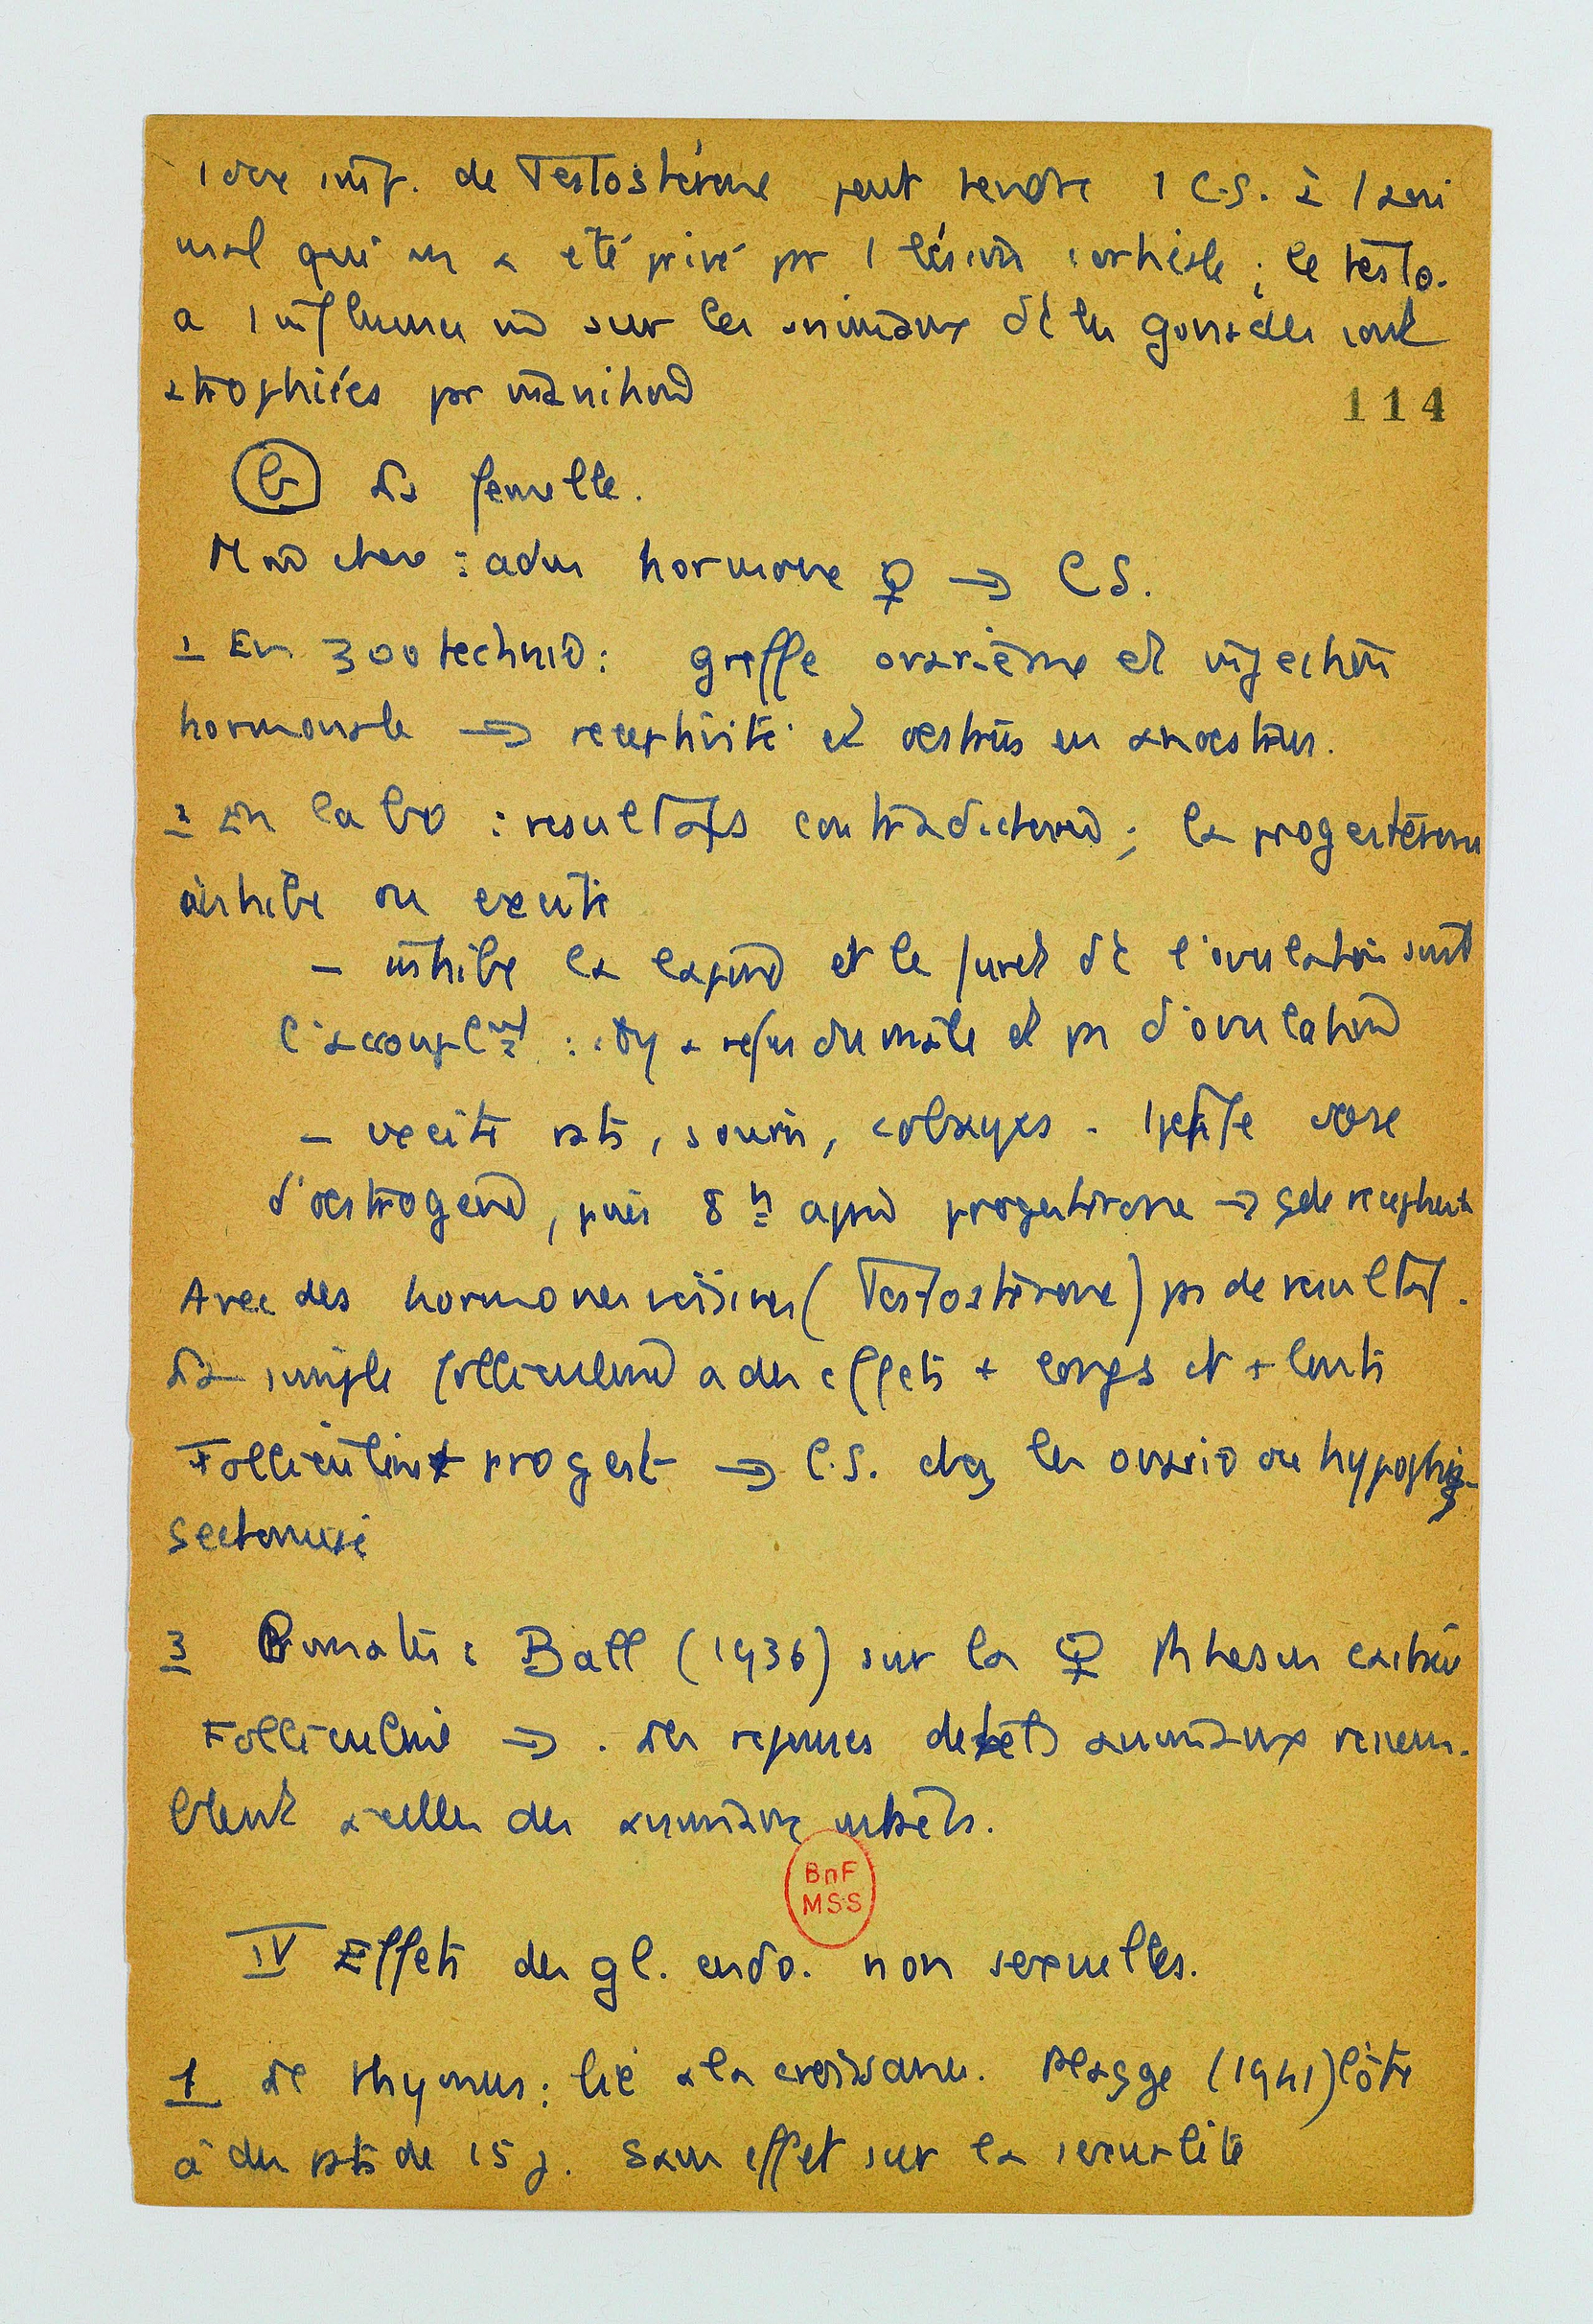 1 dose imp. de Testostérone peut rendre 1 C.S. à 1 ani
mal qui en a été privé pr 1 lésion corticale ; le testo.
a 1 influence sur les animaux dt les gonades sont
atrophiées pr
114
b La femelle.
adm hormone ♀ → CS.
1 En zootechnie : greffe ovarienne et injection
hormonale → receptivité et oestrus en anoestrus.
2 En labo : resultats contradictoires ; la progestérone
inhibe ou excite
– inhibe la lapine et le furet dt l'ovulation suit
l'accouplnt : il y a refus du mâle et pas d'ovulation
– excite rats, souris, cobayes . 1 petite dose
d'oestrogène, puis 8 h après progestérone → gde receptivité
Avec des hormones voisines (Testostérone) pas de resultat.
La simple folliculine a des effets + longs et + lents
Folliculine progest → C.S. chez les ovario ou hypophy-
sectomisé
3 Primates : Ball (1936) sur la ♀ Rhesus castrée
Folliculine → les reponses de animaux ressem-
blent a celles des animaux
BnF
MSS
IV Effets des gl. endo. non sexuelles.
1 Le thymus : lié a la croissance. Plagge (1941) l'ôte
à des rats de 15 j. Sans effet sur la sexualité